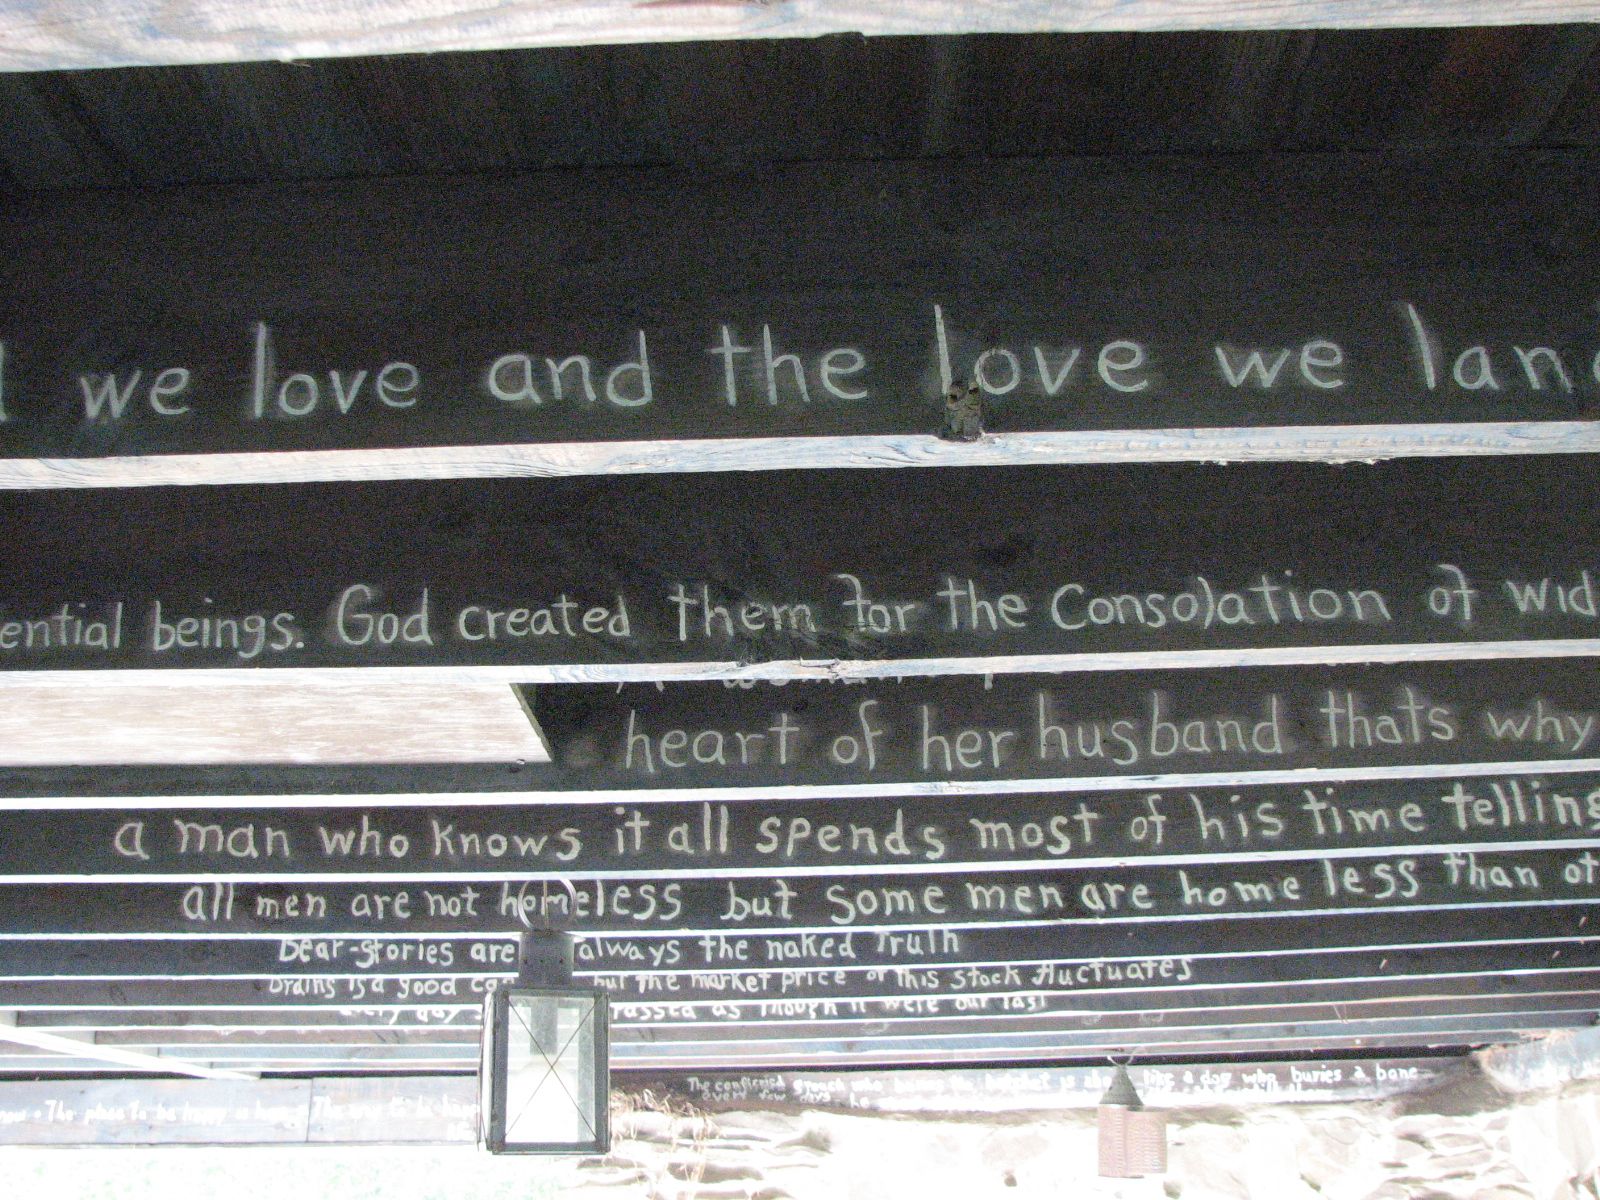 we love and the love we
ential beings. God created them for the Consolation of
heart of her husband thats why
a man who knows it all spends most of his time telling
all men are not homeless but some men are home less than
Bear-stories are always the naked Truth
Brains is a good but the market price of this stock fluctuates
every day as though it were our last
The confirmed grouch who buries the hatchet is like a dog who buries a bone
every few days he
The place to be happy is here. The way to be